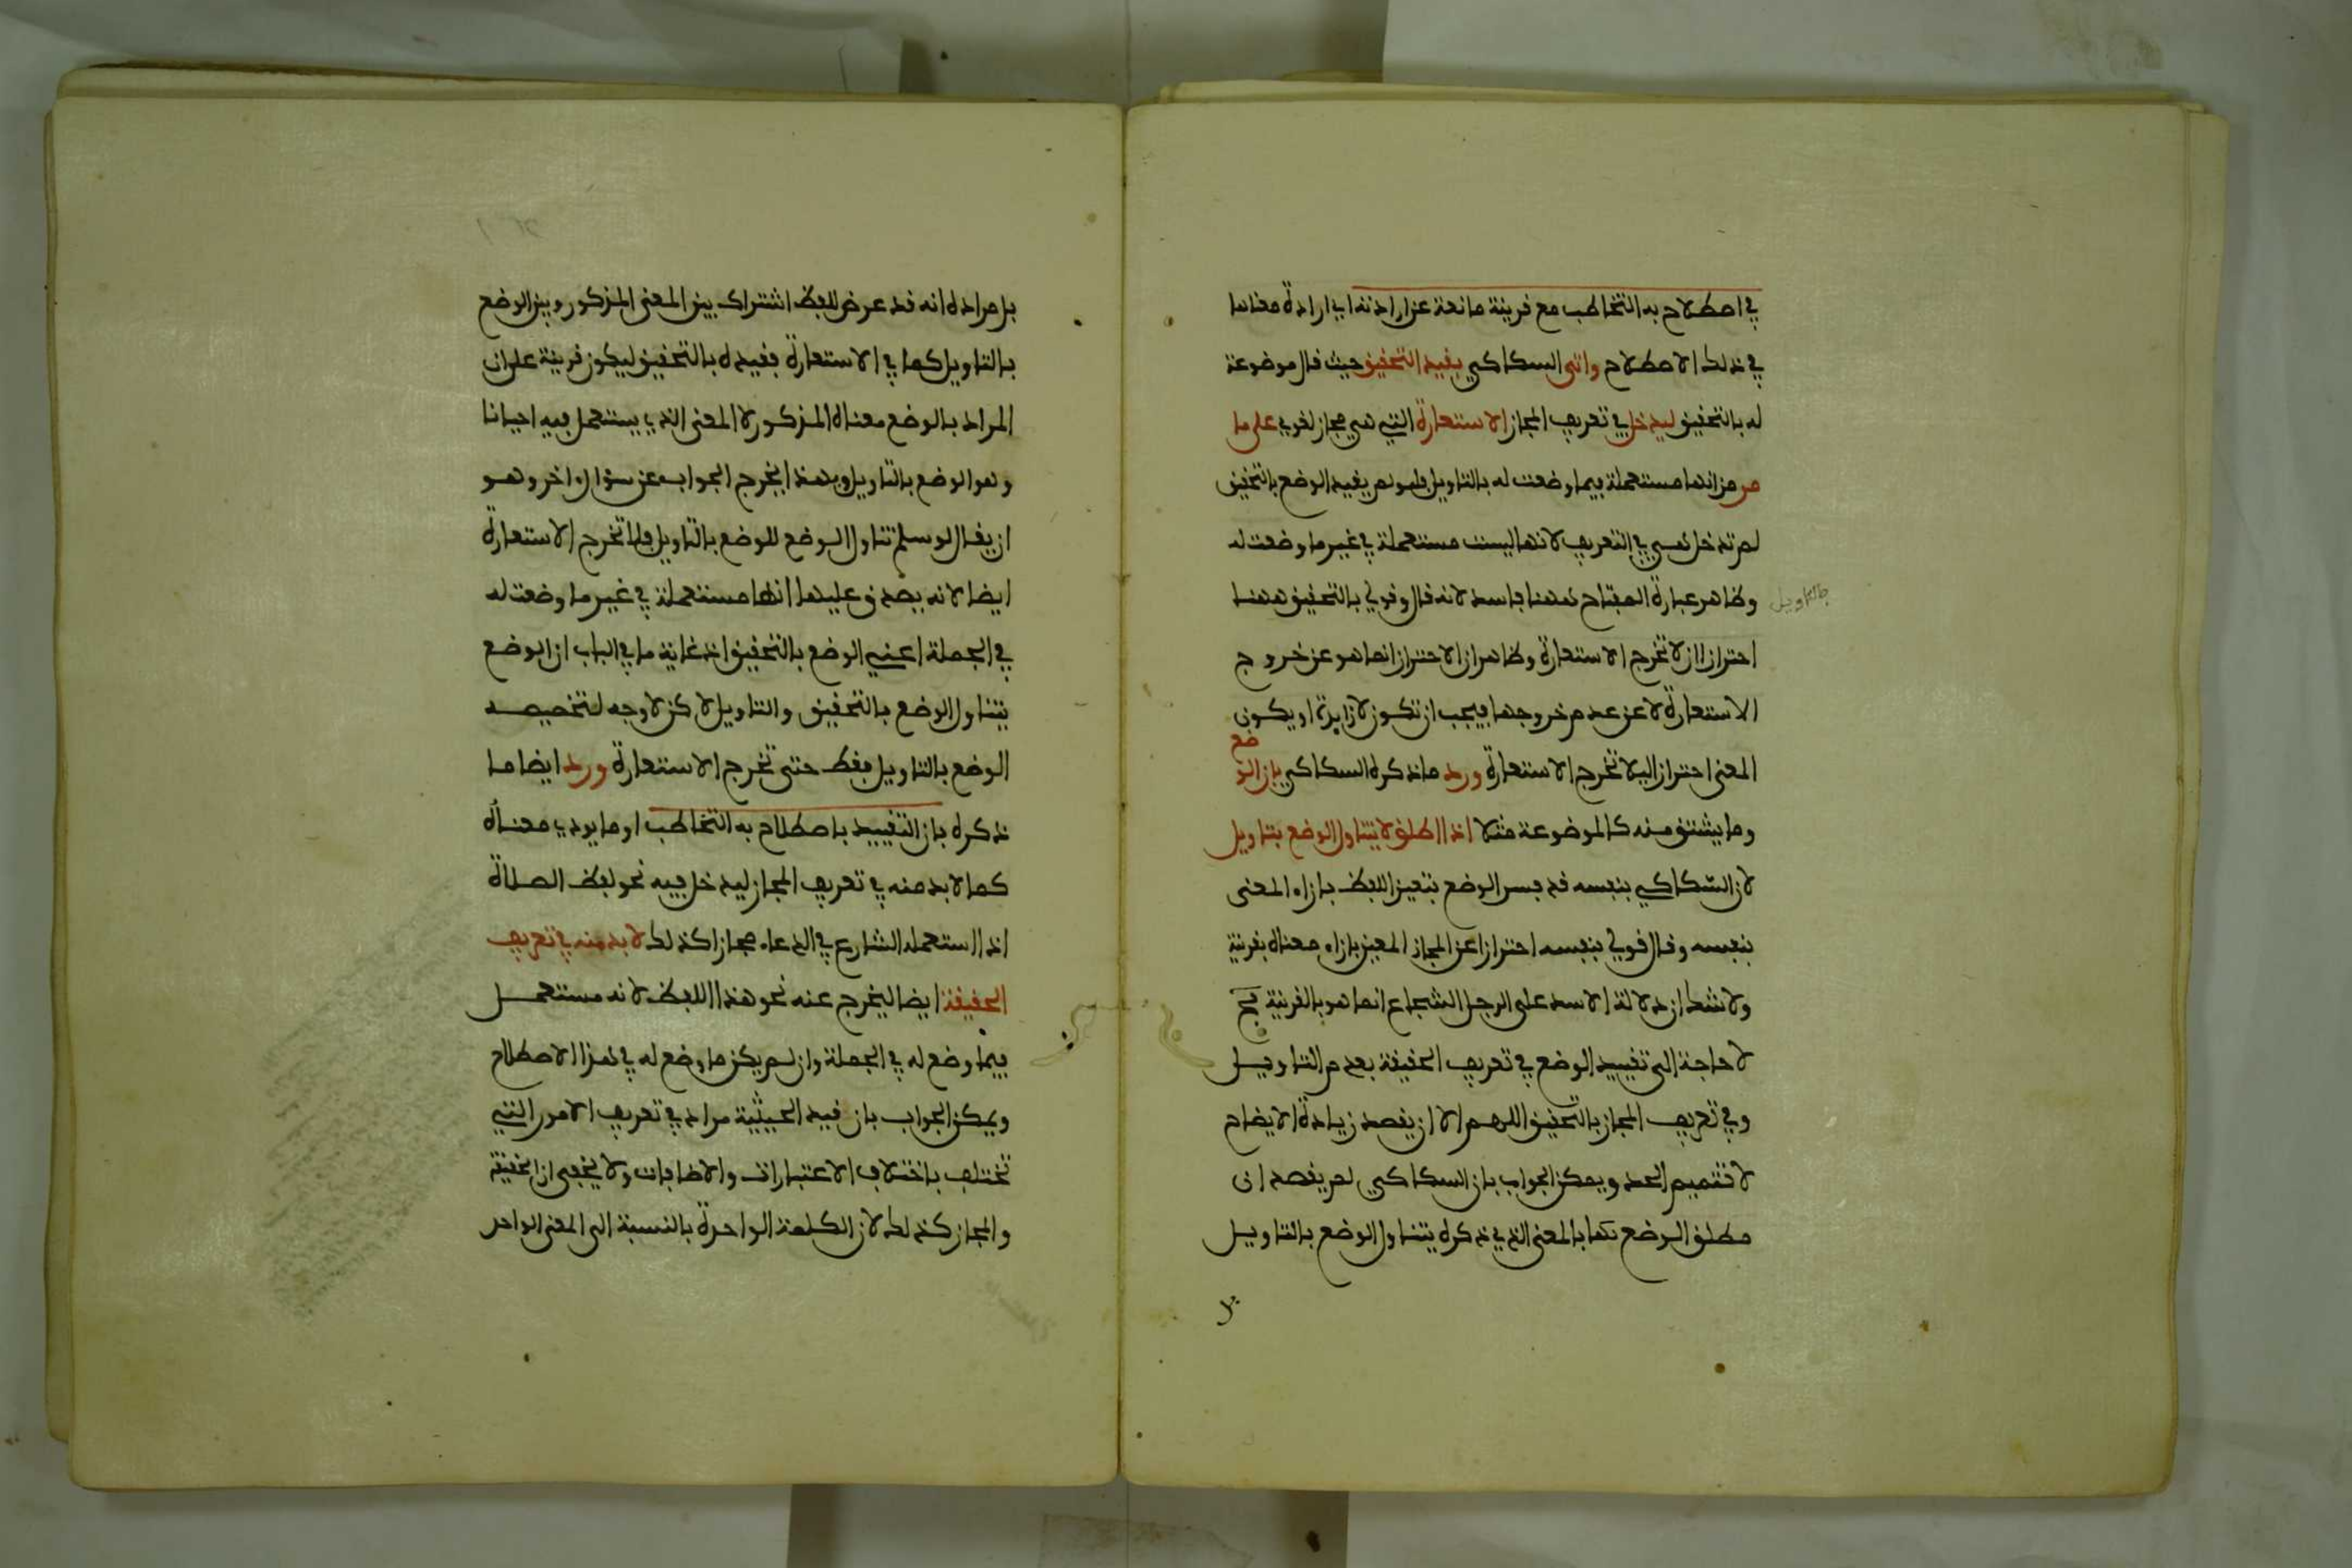 في اصطلاح به التخاطب مع قرينة مانعة عن ارادته اي ارادة معناها
في ذلك الاصطلاح واتى السكاكي بقيد التحقيق حيث قال موضوعة
له بالتحقيق ليدخل في تعريف المجاز الاستعارة التي هي مجاز لغوي على ما
مر من انها مستعملة فيما وضعت له بالتاويل فلو لم يقيد الوضع بالتحقيق
لم تدخل هي في التعريف لانها ليست مستعملة في غير ما وضعت له
بالتاويل
وظاهر عبارة المفتاح ههنا فاسد لانه قال وقولي بالتحقيق ههنا
احتراز ان لا تخرج الاستعارة وظاهر ان الاحتراز انما هو عن خروج
الاستعارة لا عن عدم خروجها فيجب ان تكون لا زايدة او يكون
المعنى احترازا ليلا تخرج الاستعارة ورد ما ذكره السكاكي بان الوضع
وما يشتق منه كالموضوعة مثلا اذا اطلق لا يتناول الوضع بتاويل
لان السكاكي بنفسه قد فسر الوضع بتعيين اللفظ بازاء المعنى
بنفسه وقال قولي بنفسه احترازا عن المجاز المعين بازاء معناه بقرينة
ولا شك ان دلالة الاسد على الرجل الشجاع انما هو بالقرينة فح
لا حاجة الى تقييد الوضع في تعريف الحقيقة بعدم التاويل
وفي تعريف المجاز بالتحقيق اللهم الا ان يقصد زيادة الايضاح
لا تتميم الحد ويمكن الجواب بان السكاكي لم يقصد ان
مطلق الوضع بالمعنى الذي ذكره يتناول الوضع بالتاويل
بل
بل مراده انه قد عرض للفظ اشتراك بين المعنى المذكور وبين الوضع
بالتاويل كما في الاستعارة فقيده بالتحقيق ليكون قرينة على ان
المراد بالوضع معناه المذكور لا المعنى الذي يستعمل فيه احيانا
وهو الوضع بالتاويل وبهذا يخرج الجواب عن سؤال اخر وهو
ان يقال لو سلم تناول الوضع للوضع بالتاويل فلا تخرج الاستعارة
ايضا لانه يصدق عليها انها مستعملة في غير ما وضعت له
في الجملة اعني الوضع بالتحقيق اذ غاية ما في الباب ان الوضع
يتناول الوضع بالتحقيق والتاويل لاكن لا وجه لتخصيصه
الوضع بالتاويل فقط حتى تخرج الاستعارة ورد ايضا ما
ذكره بان التقييد باصطلاح به التخاطب او ما يودي معناه
كما لا بد منه في تعريف المجاز ليدخل فيه نحو لفظ الصلاة
اذا استعمله الشارع في الدعاء مجازا كذلك لا بد منه في تعريف
الحقيقة ايضا ليخرج عنه نحو هذا اللفظ لانه مستعمل
فيما وضع له في الجملة وان لم يكن ما وضع له في هذا الاصطلاح
ويمكن الجواب بان قيد الحيثية مراد في تعريف الامور التي
تختلف باختلاف الاعتبارات والاضافات ولا يخفى ان الحقيقة
والمجاز كذلك لان الكلمة الواحدة بالنسبة الى المعنى الواحد